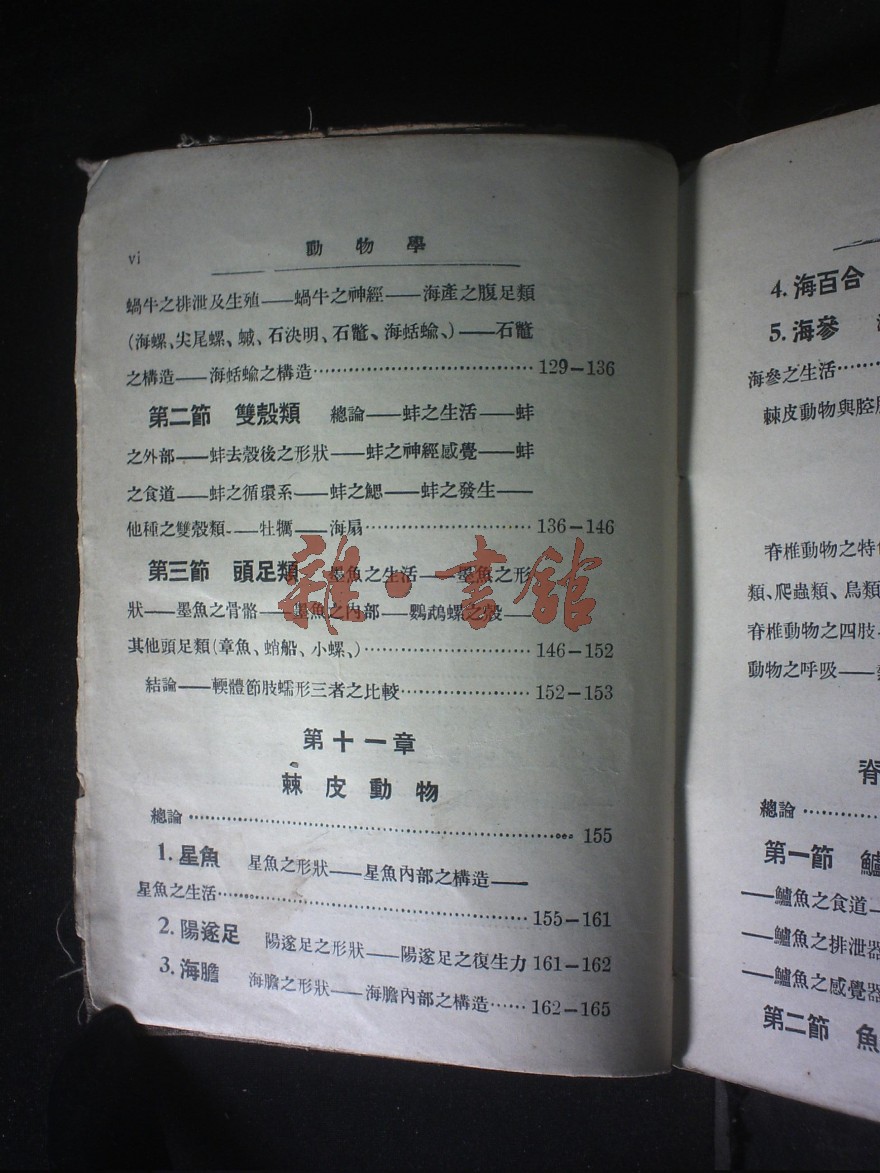 vi
動物學
蝸牛之排泄及生殖——蝸牛之神經——海產之腹足類
(海螺、尖尾螺、蛾、石決明、石鼈、海蛞蝓、)——石鼈
之構造——海蛞蝓之構造……………………………129–136
第二節 雙殼類 總論——蚌之生活——蚌
之外部——蚌去殼後之形狀——蚌之神經感覺——蚌
之食道——蚌之循環系——蚌之鰓——蚌之發生——
他種之雙殼類——牡蠣——海扇……………………136–146
第三節 頭足類 墨魚之生活——墨魚之形
狀——墨魚之骨骼——墨魚之內部——鸚鵡螺之殼——
其他頭足類(章魚、蛸船、小螺、)……………………146–152
結論——輭體節肢蠕形三者之比較………………152–153
第十一章
棘皮動物
總論……………………………………………………155
1. 星魚 星魚之形狀——星魚內部之構造——
星魚之生活………………………………………155–161
2. 陽遂足 陽遂足之形狀——陽遂足之復生力 161–162
3. 海膽 海膽之形狀——海膽內部之構造……162–165
雜·書館
4. 海百合
5. 海參
海參之生活……
棘皮動物與腔腸
脊椎動物之特
類、爬蟲類、鳥類
脊椎動物之四肢
動物之呼吸——
脊
總論……
第一節 鱸
——鱸魚之食道
——鱸魚之排泄器
——鱸魚之感覺器
第二節 魚